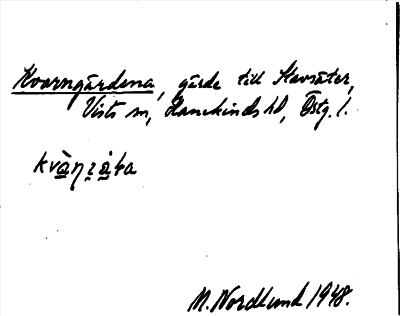 Kvarngärdena, gärde till Stavsäter,
Vists sn, Hanekinds hd, Östg. l.
M. Nordlund 1948.